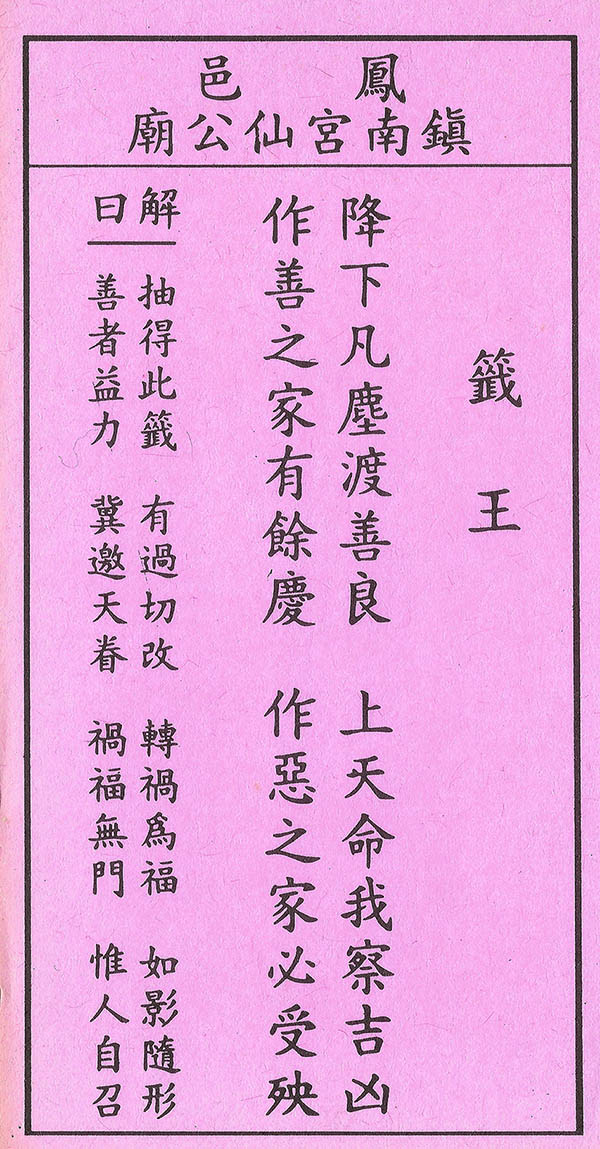 鳳邑
鎮南宮仙公廟
籤王
降下凡塵渡善良 上天命我察吉凶
作善之家有餘慶 作惡之家必受殃
解曰
抽得此籤 有過切改 轉禍爲福 如影隨形
善者益力 冀邀天眷 禍福無門 惟人自召